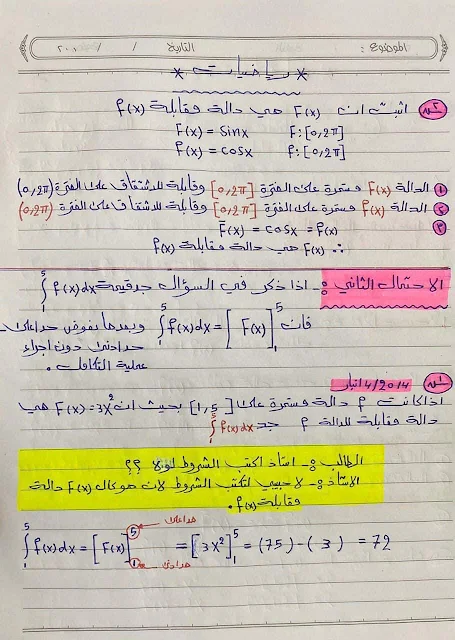 الموضوع : التاريخ / / ٢٠٠
* رياضيات *
س٢ اثبت ان F(x) هي دالة مقابلة f(x)
F(x) = Sinx f:[0,2π]
f(x) = cosx f:[0,2π]
① الدالة F(x) مستمرة على الفترة [0,2π] وقابلة للاشتقاق على الفترة (0,2π)
② الدالة f(x) مستمرة على الفترة [0,2π] وقابلة للاشتقاق على الفترة (0,2π)
③ F̄(x) = cosx = f(x)
∴ F(x) هي دالة مقابلة f(x)
الاحتمال الثاني :- اذا ذكر في السؤال جد قيمة ∫₁⁵ f(x)dx
فان ∫₁⁵ f(x)dx = [F(x)]₁⁵ وبعدها نعوض حد اعلى -
حد ادنى دون اجراء
عملية التكامل .
س١ 2014/4 انبار
اذا كانت f دالة مستمرة على [1,5] بحيث ان F(x) = 3x² هي
دالة مقابلة للدالة f جد ∫₁⁵ f(x)dx
الطالب :- استاذ اكتب الشروط لو لا ؟؟
الاستاذ :- لا حبيبي لتكتب الشروط لان هو كال F(x) دالة
مقابلة f(x).
حد اعلى
∫₁⁵ f(x)dx = [F(x)]₁⁵ = [3x²]₁⁵ = (75) - (3) = 72
حد ادنى